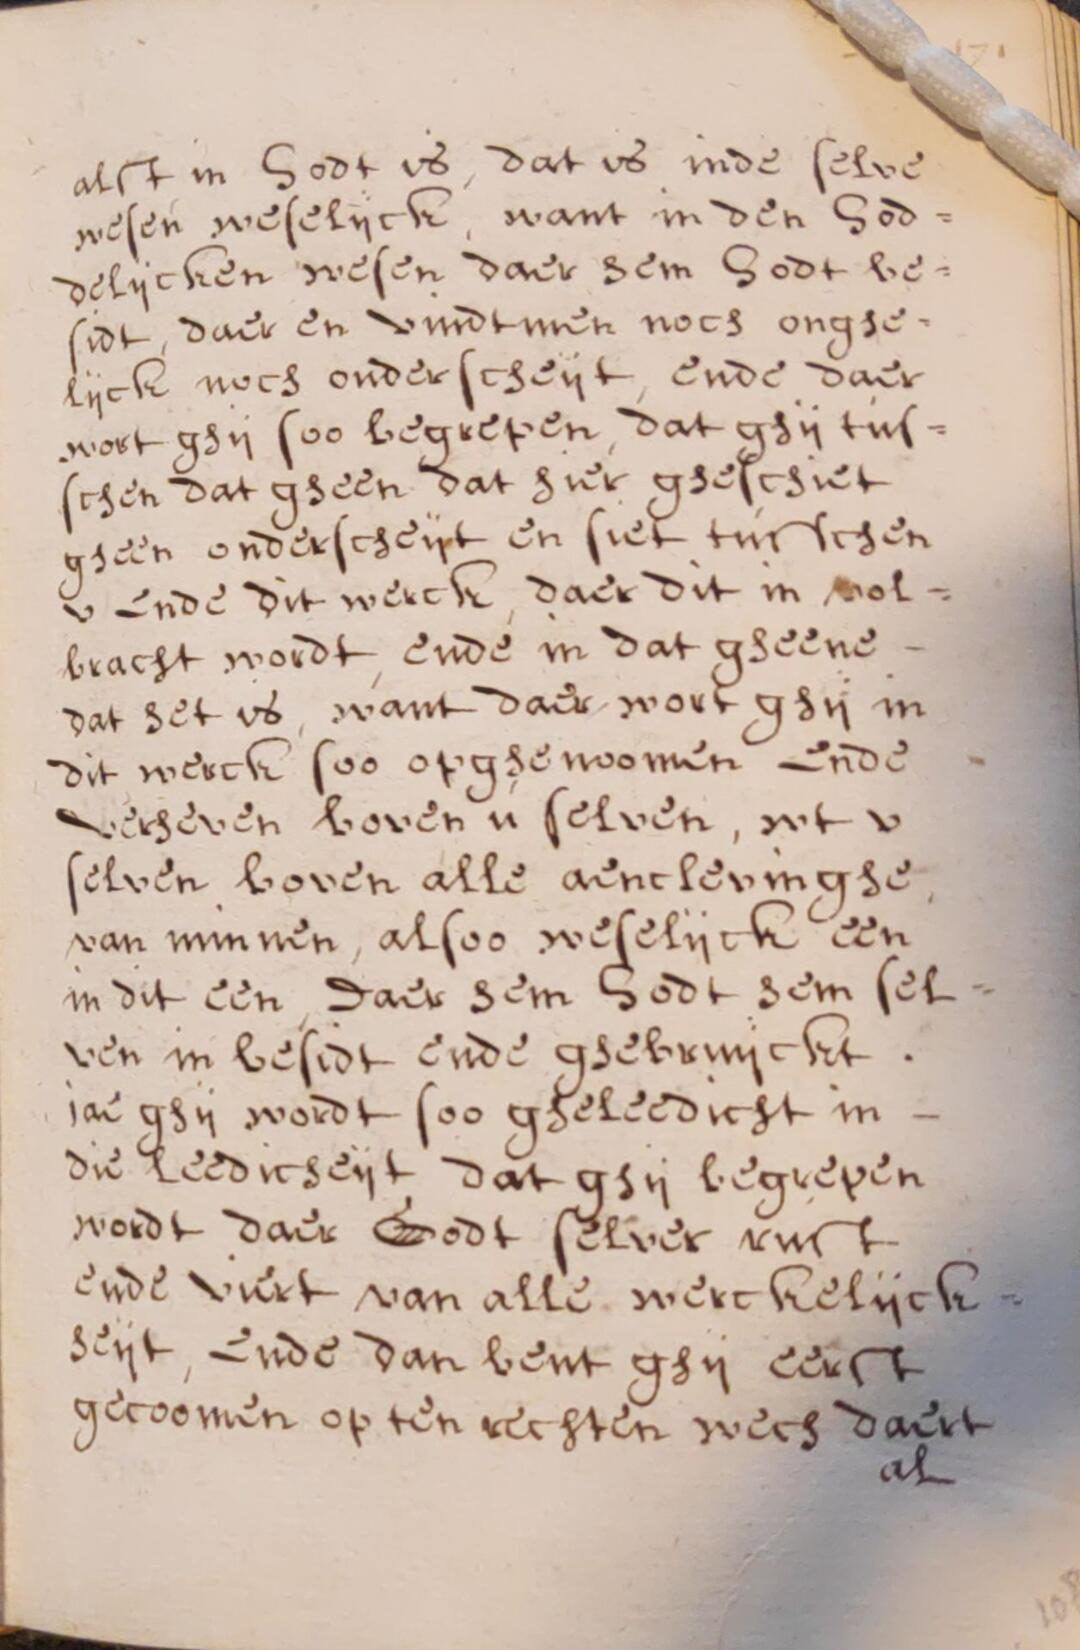 171
alst in Godt is, dat is inde selve
wesen weselijck, want in den God=
delijcken wesen daer hem Godt be=
sidt, daer en vindtmen noch onghe=
lijck noch onderscheijt, ende daer
wort ghij soo begrepen, dat ghij tus=
schen dat gheen dat hier gheschiet
gheen onderscheijt en siet tusschen
v Ende dit werck, daer dit in vol=
bracht wordt, ende in dat gheene -
dat het is, want daer wort ghij in
dit werck soo opghenoomen Ende
verheven boven u selven, wt v
selven boven alle aenclevinghe,
van minnen, alsoo weselijck een
in dit een, Daer hem Godt hem sel=
ven in besidt ende ghebruijckt .
jae ghij wordt soo gheleedicht in -
die leedicheijt dat ghij begrepen
wordt daer Godt selver rust
ende viert van alle werckelijck=
heijt, Ende dan bent ghij eerst
gecoomen op ten rechten wech daert
al
108